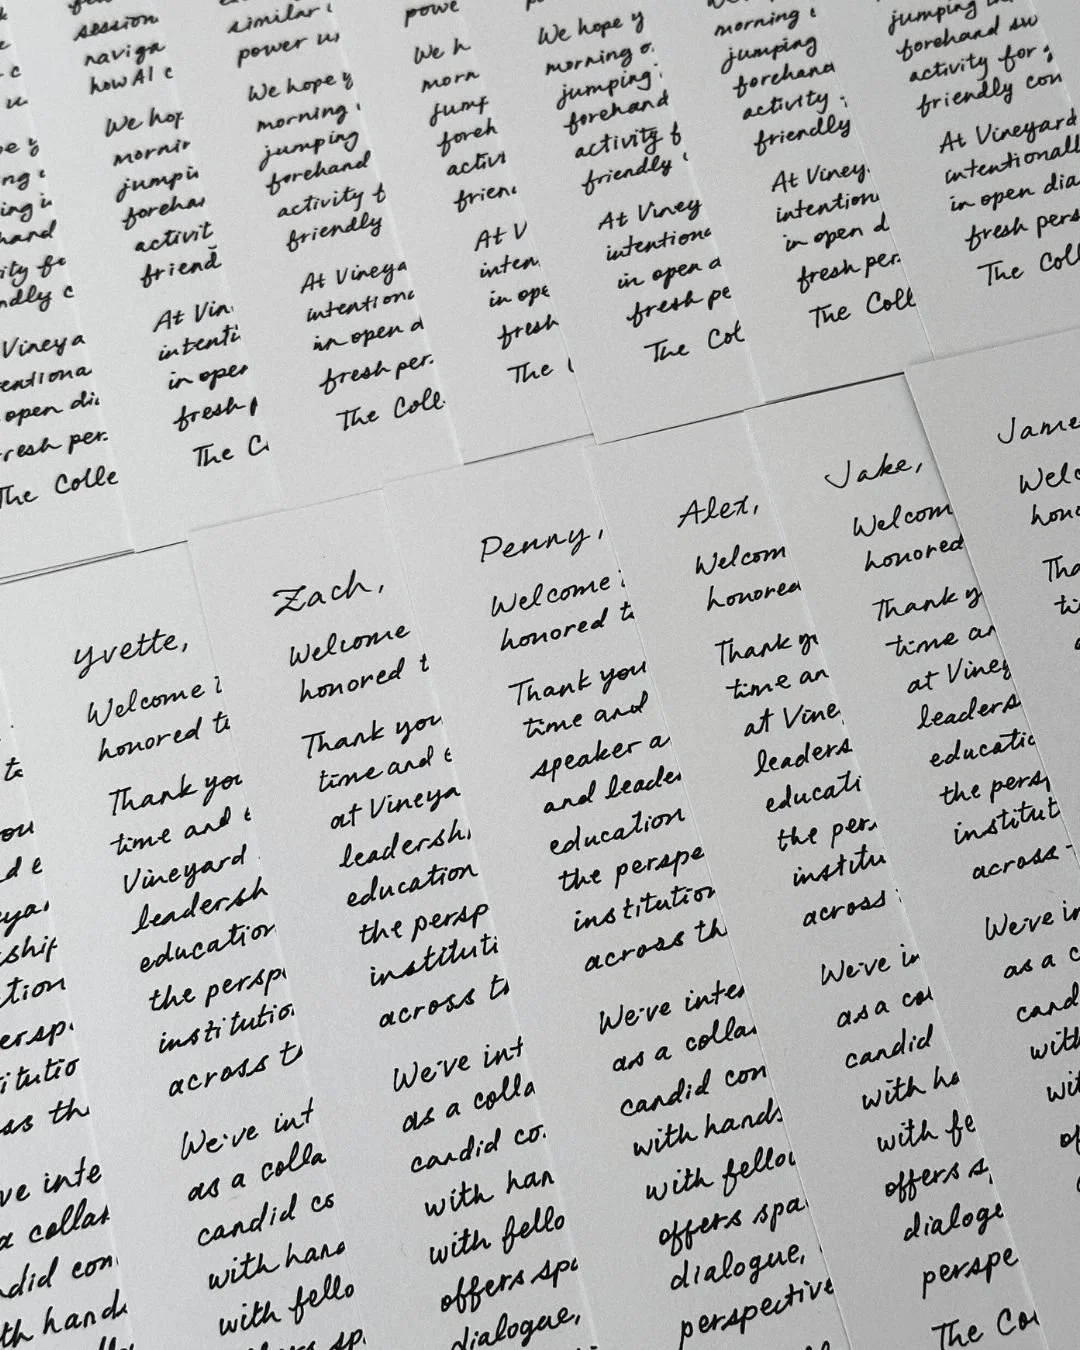 session
naviga
how AI c
We hop
mornin
jumpi
forehar
activit
friend
At Vin
intenti
in open
fresh p
The C
similar
power u
We hope y
morning
jumping
forehand
activity f
friendly
At Vineya
intentiona
in open d
fresh per
The Colle
powe
We h
morn
jump
foreh
activi
frien
At V
inten
in ope
fresh
The
We hope y
morning o
jumping
forehand
activity f
friendly
At Viney
intentiona
in open a
fresh pe
The Col
morning
jumping
forehand
activity
friendly
At Viney
intention
in open d
fresh per
The Coll
jumping in
forehand sw
activity for
friendly con
At Vineyard
intentionall
in open dia
fresh pers
The Coll
Vineya
open di
The Colle
Yvette,
Welcome
honored t
Thank you
time and
Vineyard
leadersh
education
the persp
institutio
across t
We've int
as a colla
candid co
with hand
with fello
Zach,
Welcome
honored t
Thank you
time and
at Vineya
leadershi
education
the persp
instituti
across t
We've int
as a colla
candid co
with han
with fello
offers spa
dialogue,
Penny,
Welcome
honored t
Thank you
time and
speaker a
and leader
education
the perspe
institution
across th
We've inte
as a colla
candid con
with hands
with fello
offers spa
dialogue,
perspective
Alex,
Welcom
honored
Thank y
time an
at Vine
leaders
educati
the per
institu
across
We've in
as a co
candid
with ha
with fe
offers s
dialogu
perspe
The Co
Jake,
Welcom
honored
Thank y
time an
at Viney
leaders
educatio
the persp
institut
across
We've in
as a c
cand
with
wit
of
Jame
Welc
hon
Tha
ti
a